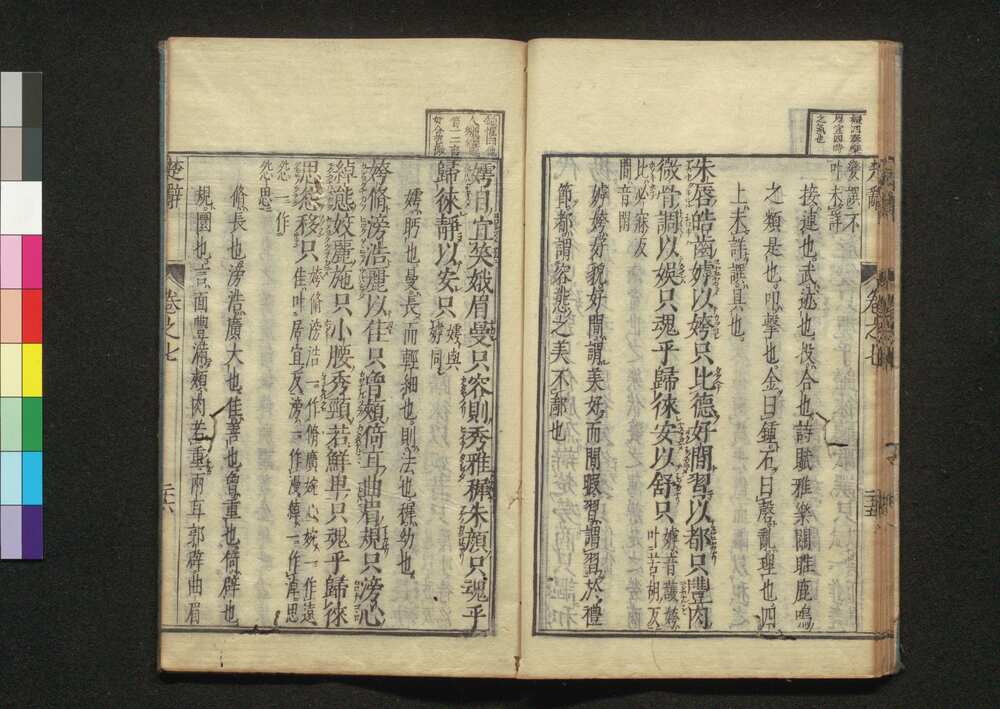 變譔不
叶未詳
接連也武迹也投合也詩賦雅樂關雎鹿鳴
之類是也叩擊也金曰鍾石曰磬亂理也四
上未詳譔具也
朱唇皓齒嫭以姱只比德好閒習以都只豐肉
微骨調以娛只魂乎歸徠安以舒只
嫭音護姱
叶苦胡反
比必寐反
閒音閑
嫭姱好貌好閒謂美好而閒暇習謂習於禮
節都謂容態之美不鄙也
嫮目宜笑娥眉曼只容則秀雅穉朱顏只魂乎
歸徠靜以安只
嫮與
嫭同
嫮眄也曼長而輕細也則法也穉幼也
姱脩滂浩麗以佳只曾頰倚耳曲眉規只滂心
綽態姣麗施只小腰秀頸若鮮卑只魂乎歸徠
思怨移只
姱脩滂浩一作脩廣婉心婉一作遠
佳叶居宜反滂一作漫綽一作淖思
怨一作
怨思
脩長也滂浩廣大也佳善也曾重也倚辟也
規圜也言面豐滿頰肉若重兩耳郭辟曲眉
楚辭
卷之七
二十六